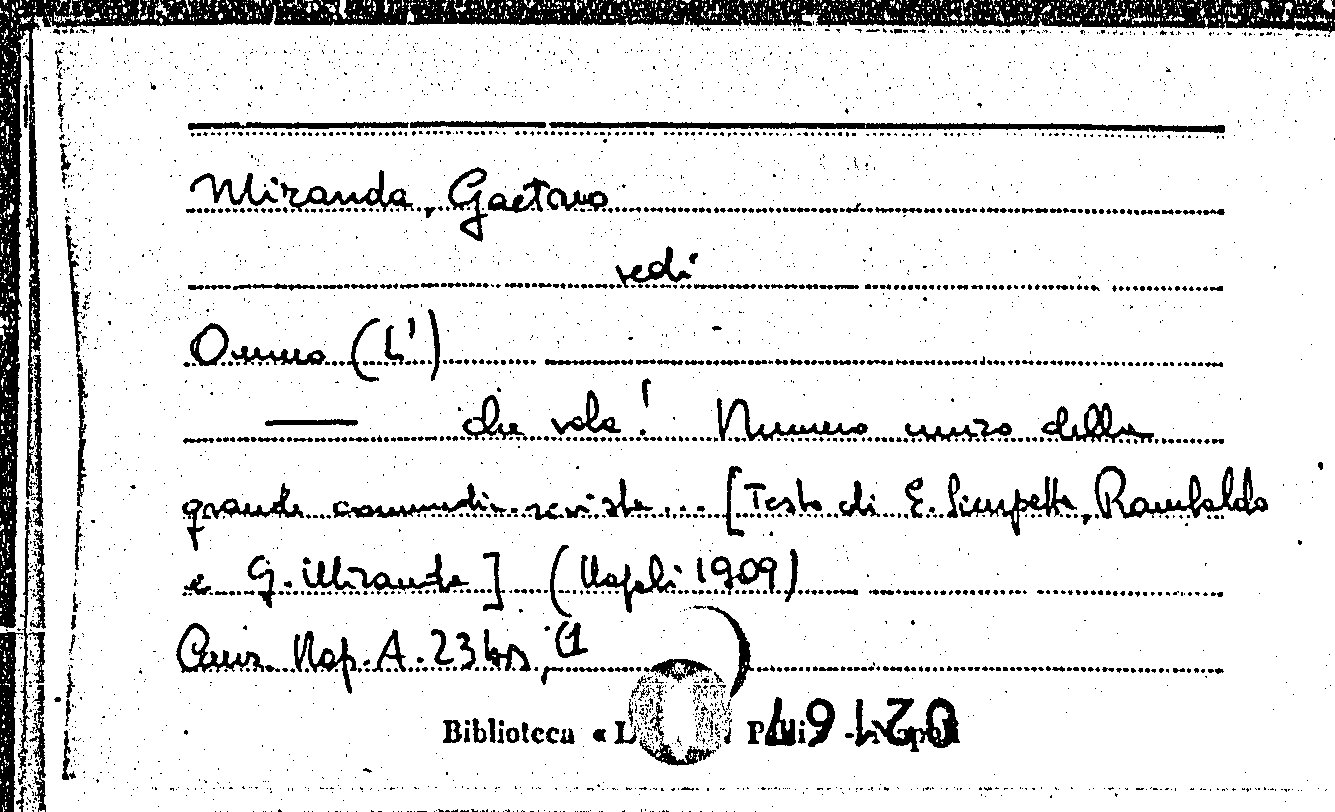 Miranda, Gaetano
vedi
Ommo (L')
— che vola! Numero unico della
grande commedia-rivista... [Testo di E. Scarpetta, Rambaldo
e G. Miranda] (Napoli 1909)
Canz. Nap. A. 23 bis, (1
Biblioteca « L